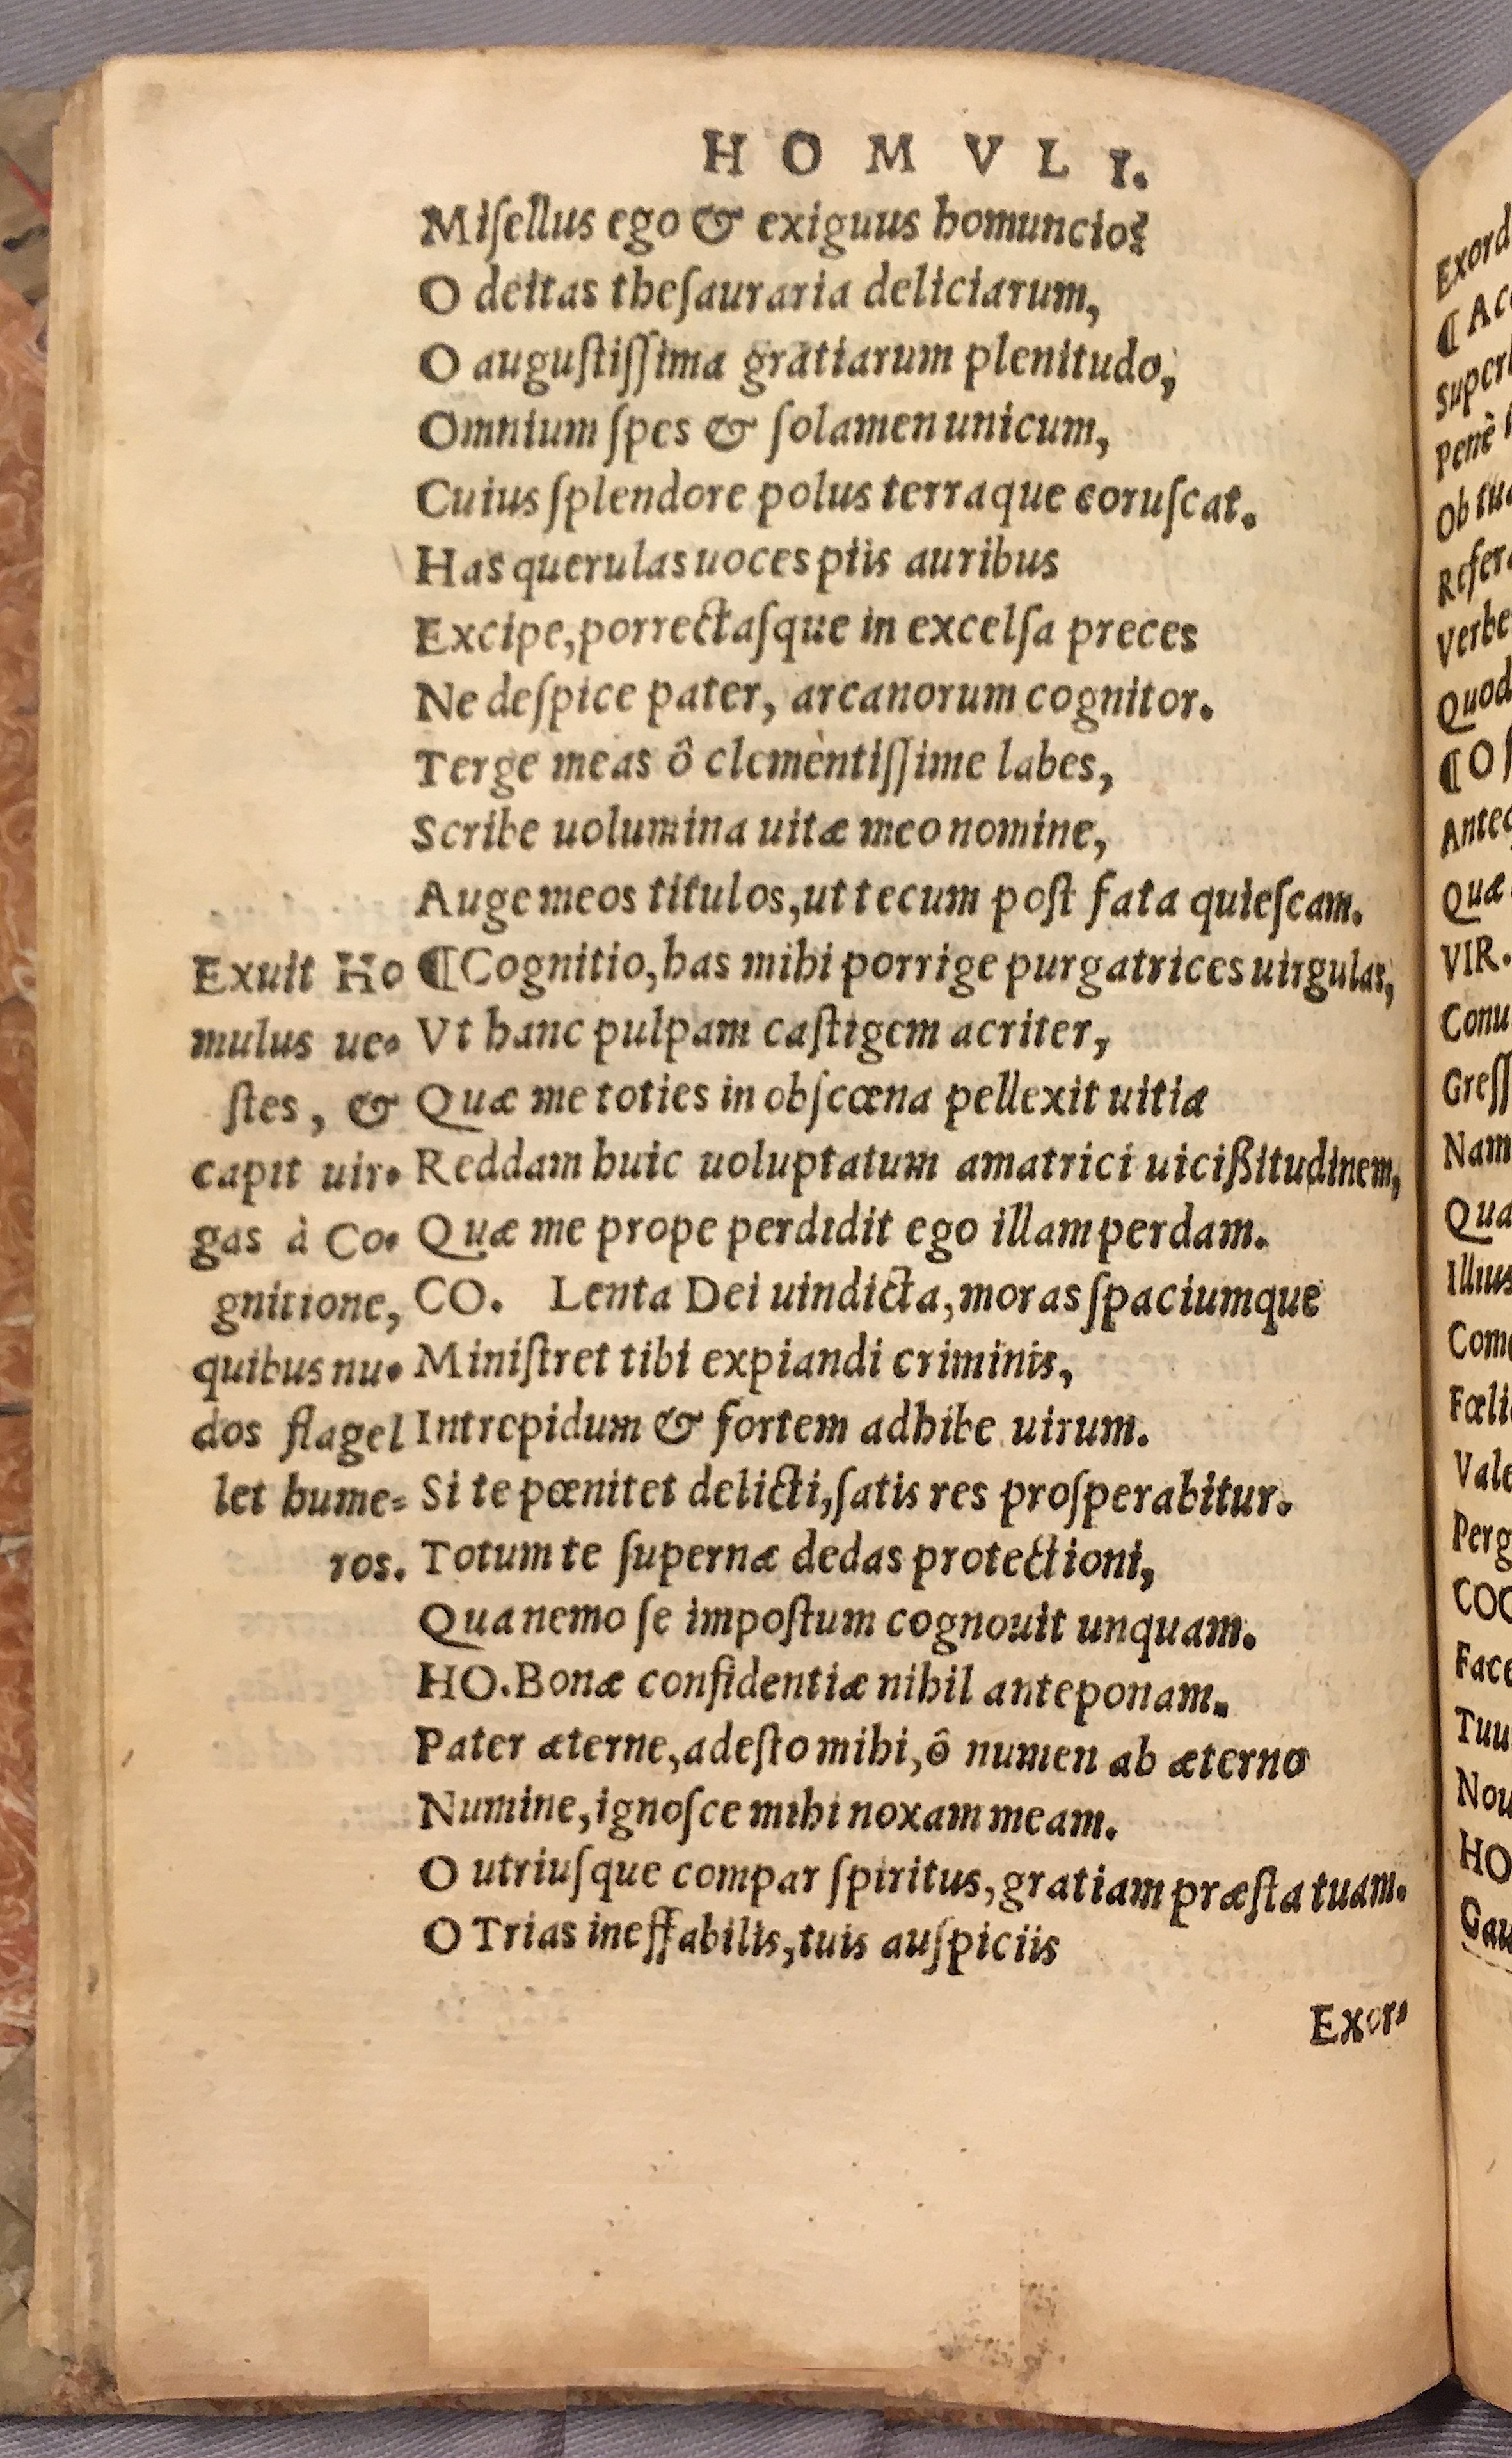 HOMVLI.
Miſellus ego & exiguus homuncio?
O deitas theſauraria deliciarum,
O auguſtiſſima gratiarum plenitudo,
Omnium ſpes & ſolamen unicum,
Cuius ſplendore polus terraque coruſcat.
Has querulas uoces piis auribus
Excipe, porrectaſque in excelſa preces
Ne deſpice pater, arcanorum cognitor.
Terge meas ô clemèntiſſime labes,
Scribe uolumina uitæ meo nomine,
Auge meos titulos, ut tecum poſt fata quieſcam.
¶ Cognitio, has mihi porrige purgatrices uirgulas,
Vt hanc pulpam caſtigem acriter,
Quæ me toties in obſcœna pellexit uitia
Reddam huic uoluptatum amatrici uicißitudinem,
Quæ me prope perdidit ego illam perdam.
CO. Lenta Dei uindicta, moras ſpaciumque
Miniſtret tibi expiandi criminis,
Intrepidum & fortem adhibe uirum.
Si te pœnitet delicti, ſatis res proſperabitur.
Totum te ſupernæ dedas protectioni,
Qua nemo ſe impoſtum cognouit unquam.
HO. Bonæ confidentiæ nihil anteponam.
Pater æterne, adeſto mihi, ô numen ab æterno
Numine, ignoſce mihi noxam meam.
O utriuſque compar ſpiritus, gratiam præſta tuam.
O Trias ineffabilis, tuis auſpiciis
Exor-
Exuit Ho
mulus ue-
ſtes, &
capit uir-
gas à Co-
gnitione,
quibus nu-
dos flagel
let hume-
ros.
Exord
¶ Acc
Super
Penè
Ob tu
Refer
Verbe
Quod
¶ O
Anteq
Quæ
VIR.
Conu
Greſſ
Nam
Qua
Illius
Come
Fœli
Vale
Perg
COG
Face
Tuu
Nou
HO
Gau